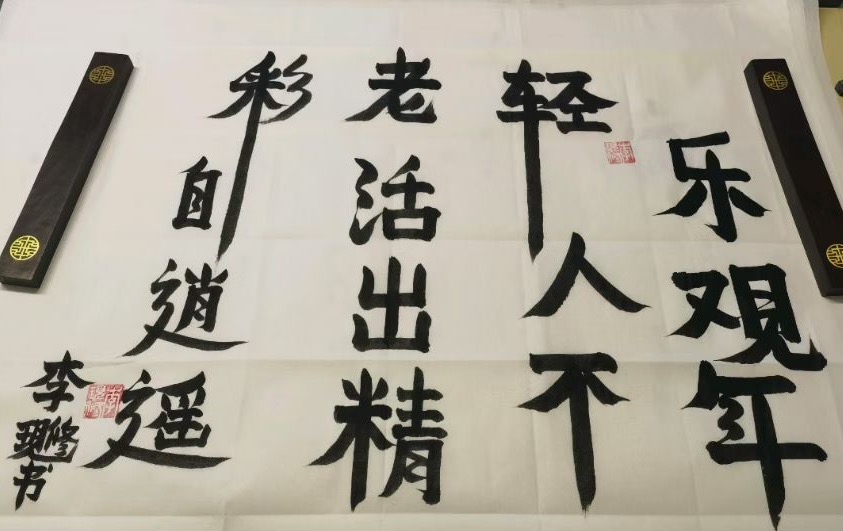 乐观年
轻人不
老活出精
彩自逍遥
李修现书